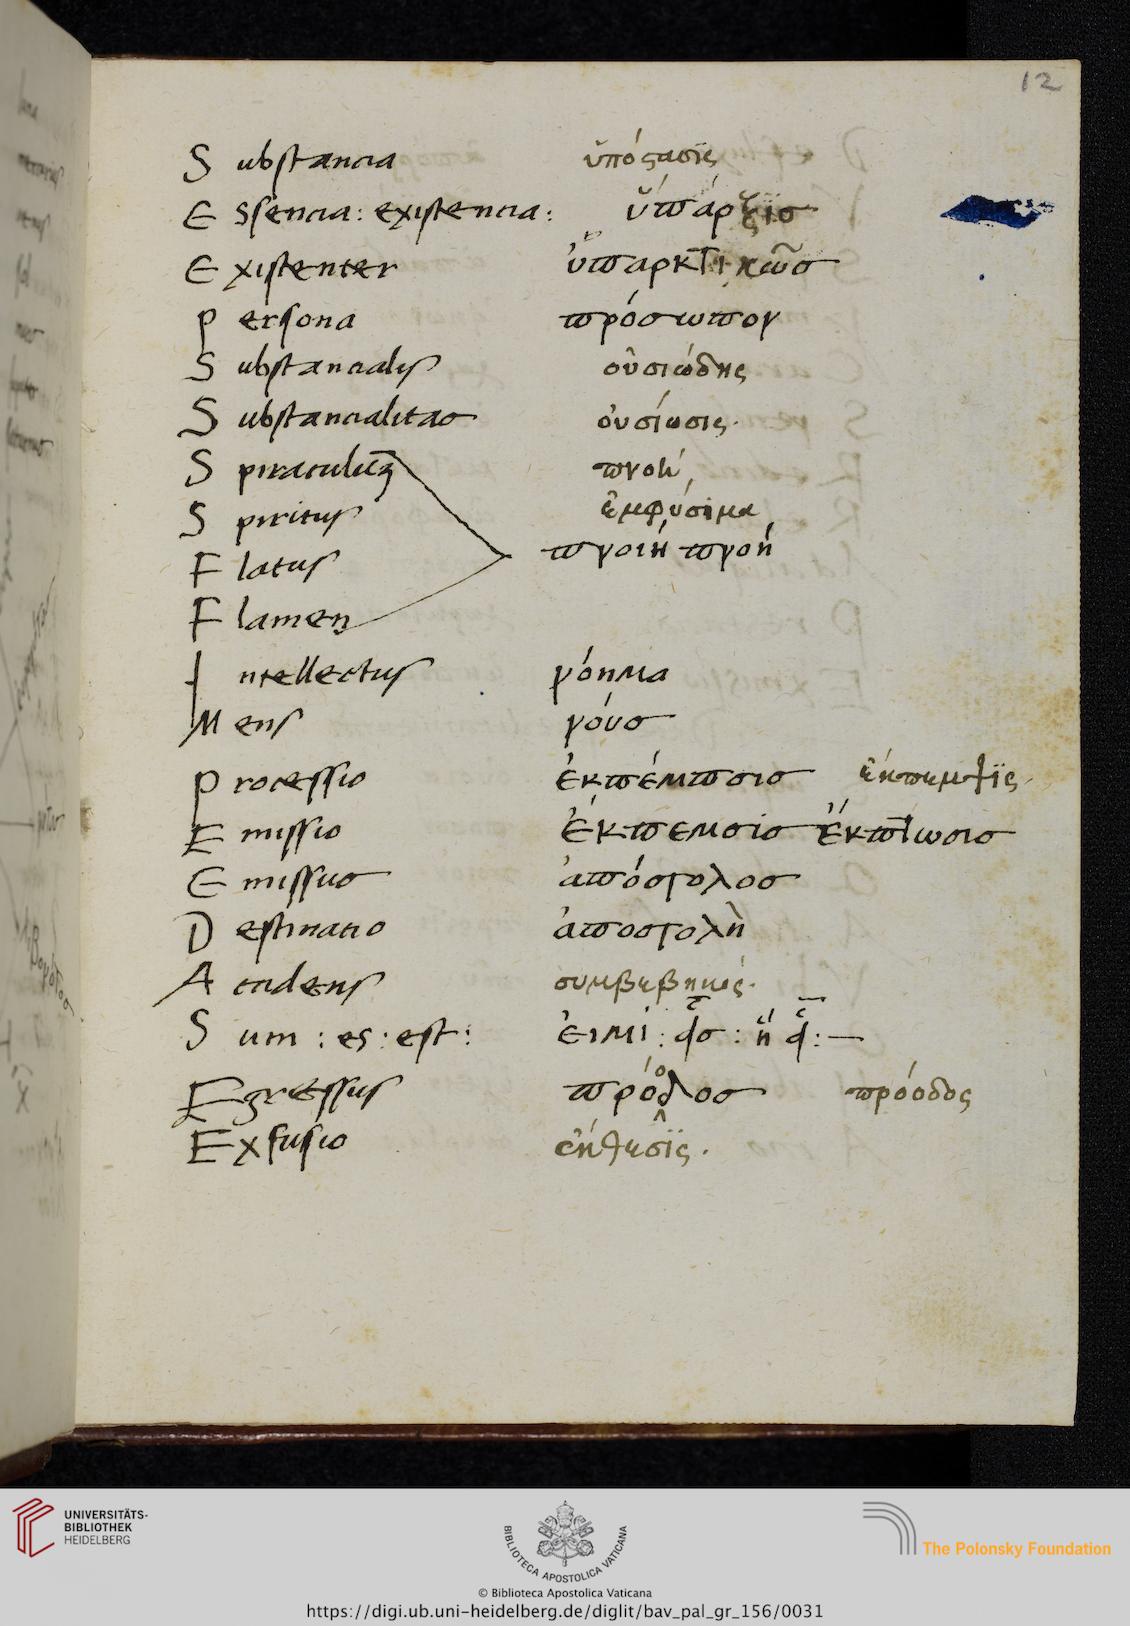 12
Substancia ὑπόστασϊς
Essencia: existencia: ὕπάρξϊσ
Existenter ὕπαρκτικῶσ
Persona πρόσωπον
Substancialis οὐσιώδης
Substancialitas οὐσίωσις.
Spiraculum πνοὴ
Spiritus ἐμφύσιμα
Flatus πνοιή πνοή
Flamen
Intellectus νόημα
Mens νόυσ
Processio ἐκπέμπσισ ἔκπεμψϊς.
Emissio ἔκπεμσίσ ἔκπτωσισ
Emissus ἀπόστολοσ
Destinatio ἀποστολὴ
Accidens συμβεβηκός.
Sum: es: est: ἐιμί:
Egressus πρόοδοσ πρόοδος
Exfusio ἔκθεσϊς.
UNIVERSITÄTS-
BIBLIOTHEK
HEIDELBERG
BIBLIOTECA APOSTOLICA VATICANA
The Polonsky Foundation
© Biblioteca Apostolica Vaticana
https://digi.ub.uni-heidelberg.de/diglit/bav_pal_gr_156/0031